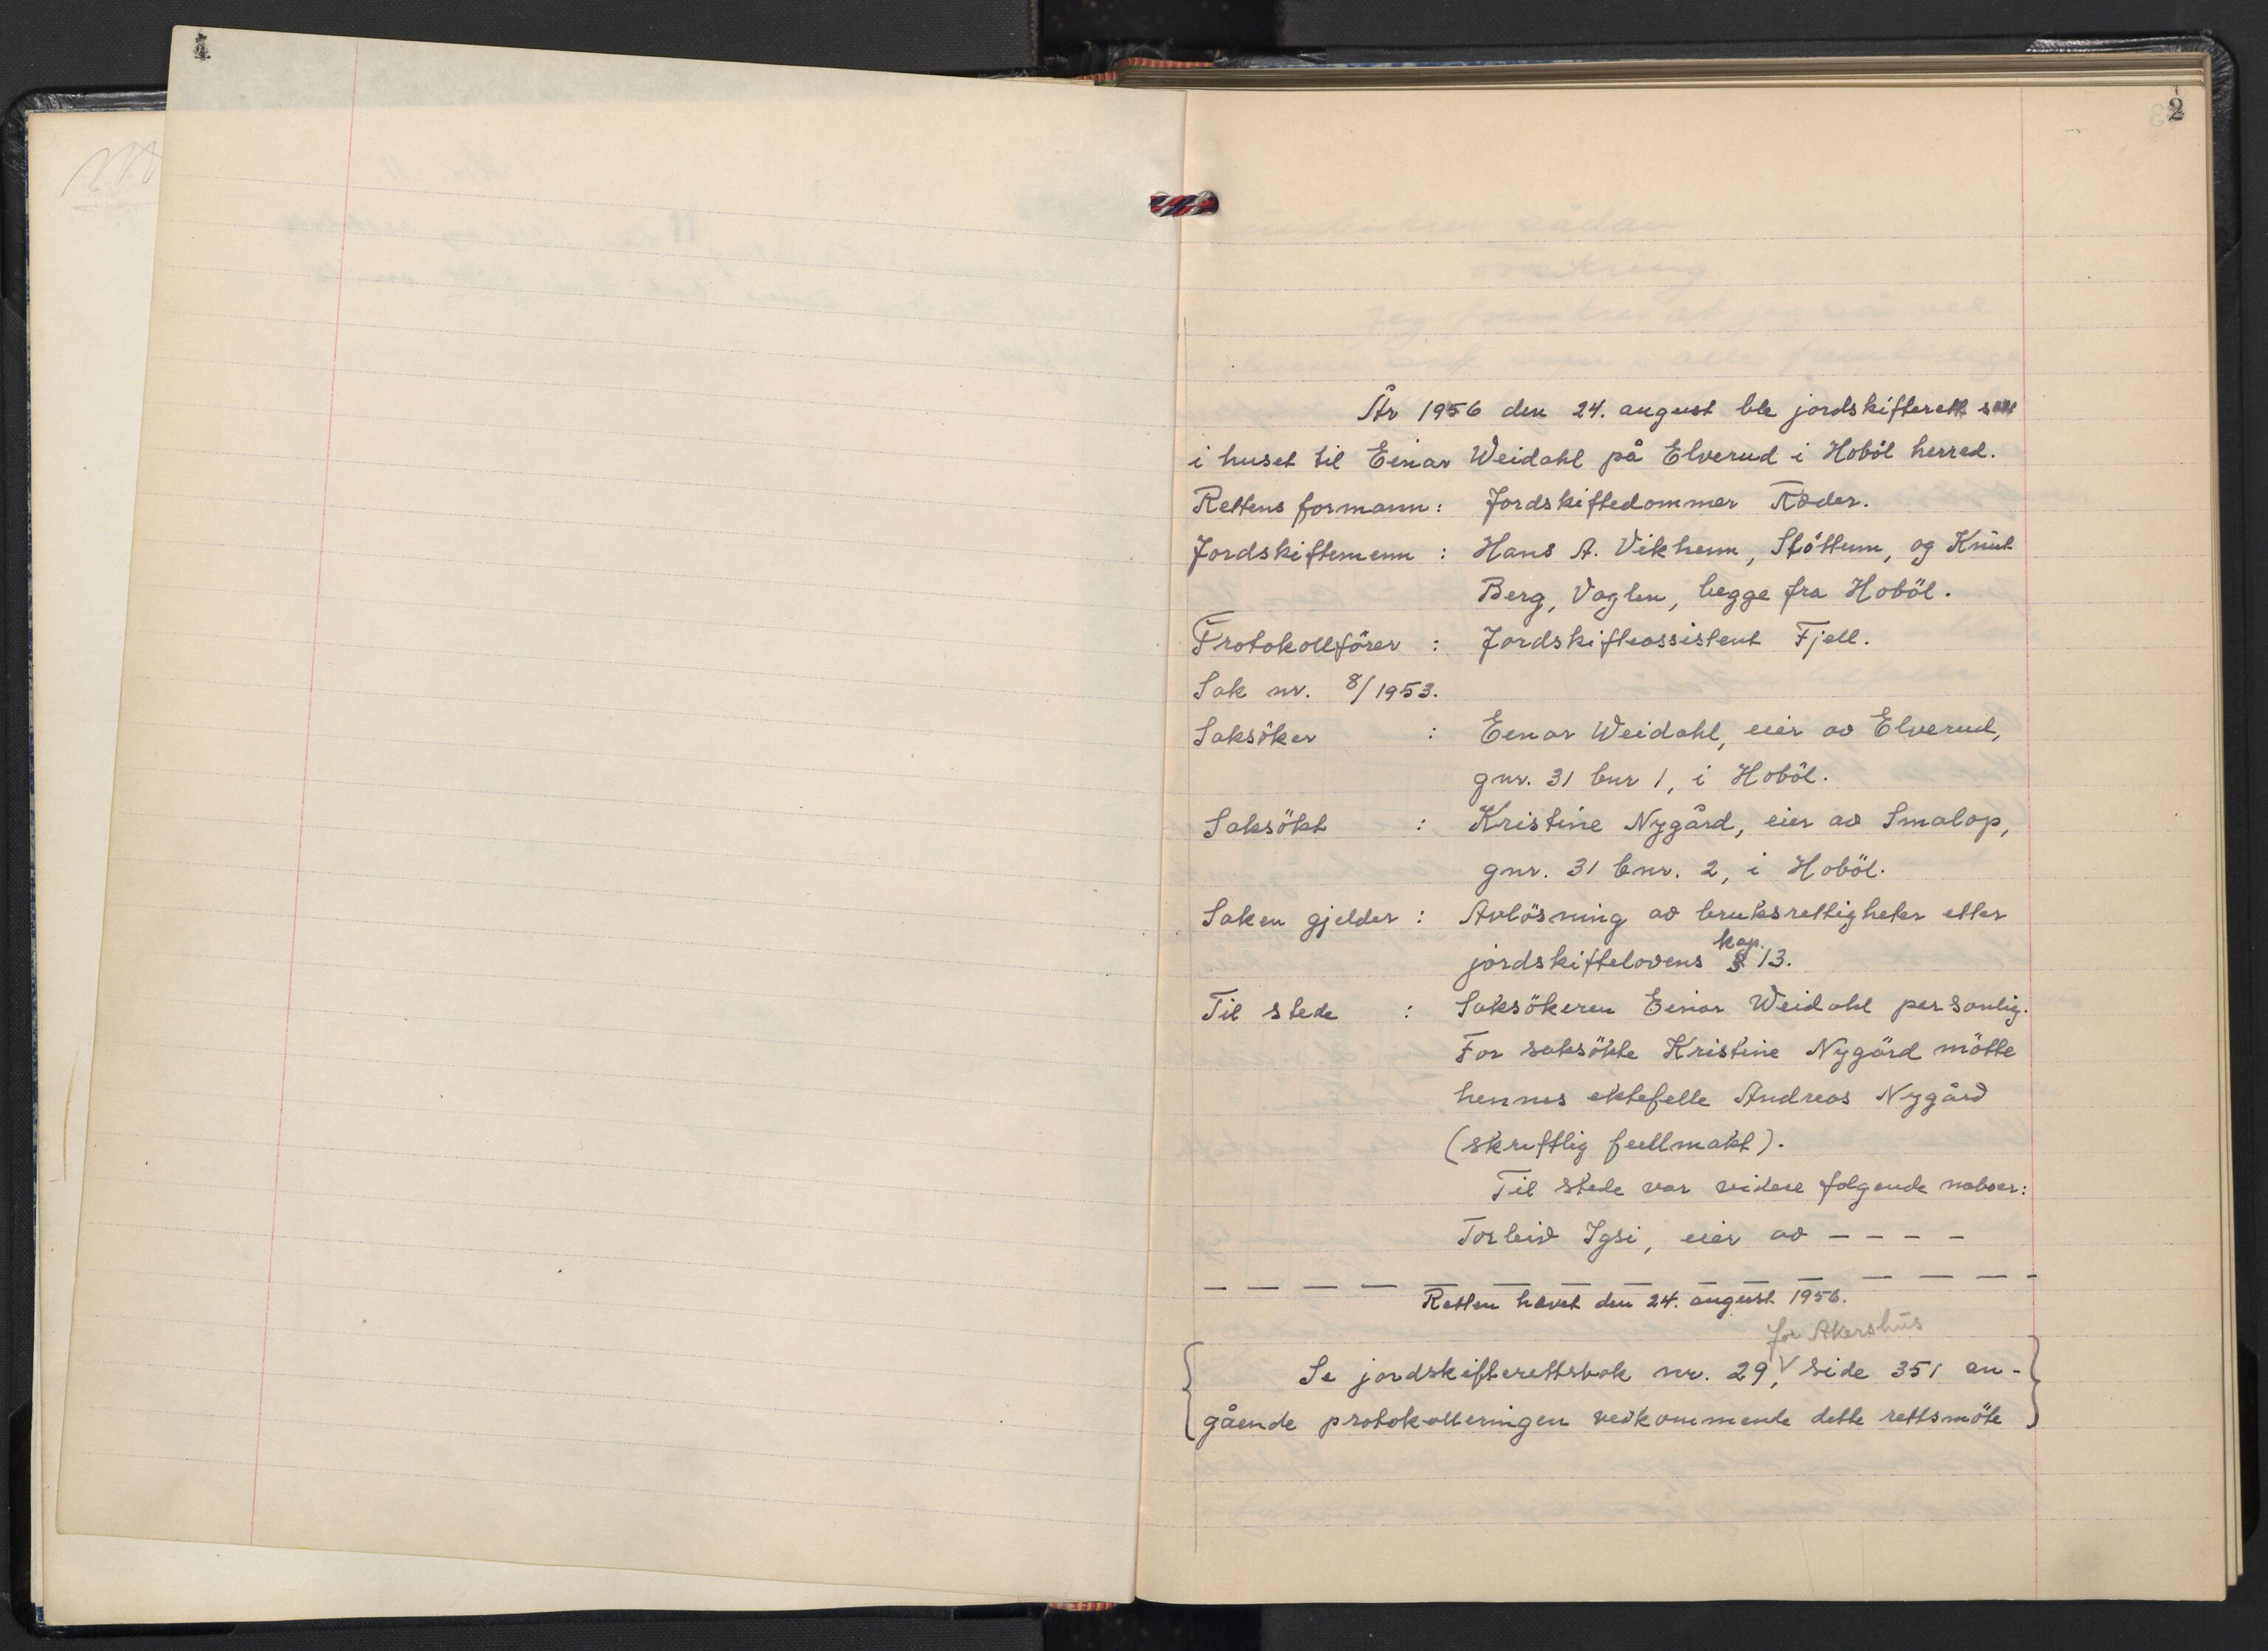 2
År 1956 den 24. august ble jordskifterett satt
i huset til Einar Weidahl på Elverud i Hoböl herred.
Rettens formann: Jordskiftedommer Ræder.
Jordskiftemenn : Hans A. Vikhenn, Stöttum, og Knut
Berg, Vaglen, begge fra Hoböl.
Protokollförer : Jordskifteassistent Fjell.
Sak nr. 8/1953.
Saksöker : Einar Weidahl, eier av Elverud,
gnr. 31 bnr 1, i Hoböl.
Saksökt : Kristine Nygård, eier av Smalop,
gnr. 31 bnr. 2, i Hoböl.
Saken gjelder : Avlösning av bruksrettigheter etter
kap.
jordskiftelovens § 13.
Til stede : Saksökeren Einar Weidahl personlig.
For saksökte Kristine Nygård mötte
hennes ektefelle Andreas Nygård
(skriftlig fullmakt).
Til stede var videre folgende naboer:
Torleiv Igsi, eier av – – – –
– – – – – – – – – – – – – – –
Retten hevet den 24. august 1956.
for Akershus
Se jordskifterettsbok nr. 29, V side 351 an-
gående protokolleringen vedkommende dette rettsmöte